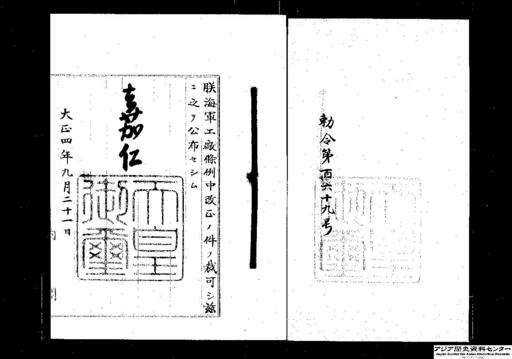 勅令第百六十九号
朕海軍工廠條例中改正ノ件ヲ裁可シ玆
ニ之ヲ公布セシム
嘉仁
天皇
御璽
大正四年九月二十一日
アジア歴史資料センター
Japan Center for Asian Historical Records